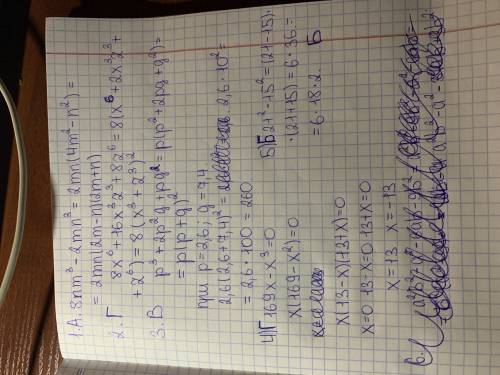 1.А. 8nm³ - 2mn³ = 2mn(4m² - n²) =
= 2mn(2m-n)(2m+n)
2. Г 8x⁶ + 16x³z³ + 8z⁶ = 8(x⁶ + 2x³z³ +
+ z⁶) = 8(x³ + z³)²
3. В p³ + 2p²q + pq² = p(p² + 2pq + q²) =
= p(p+q)²
при p = 2,6; q = 7,4
2,6(2,6+7,4)² = 2,6 · 10² =
= 2,6 · 100 = 260
4) Г 169x - x³ = 0
x(169 - x²) = 0
x(13-x)(13+x) = 0
x=0 13-x=0 13+x=0
x=13 x=-13
5) Б 21² - 15² = (21-15) ·
· (21+15) = 6 · 36 =
= 6 · 18 · 2. Б
6.